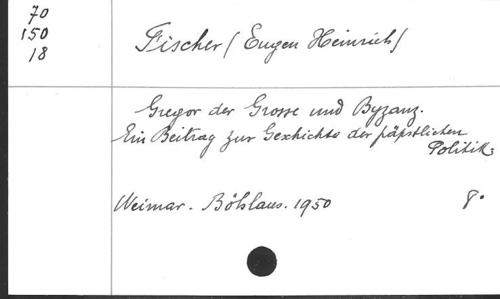 70
150
18
Fischer (Eugen Heinrich)
Gregor der Grosse und Byzanz.
Ein Beitrag zur Geschichte der päpstlichen
Politik.
Weimar. Böhlaus. 1950 8°